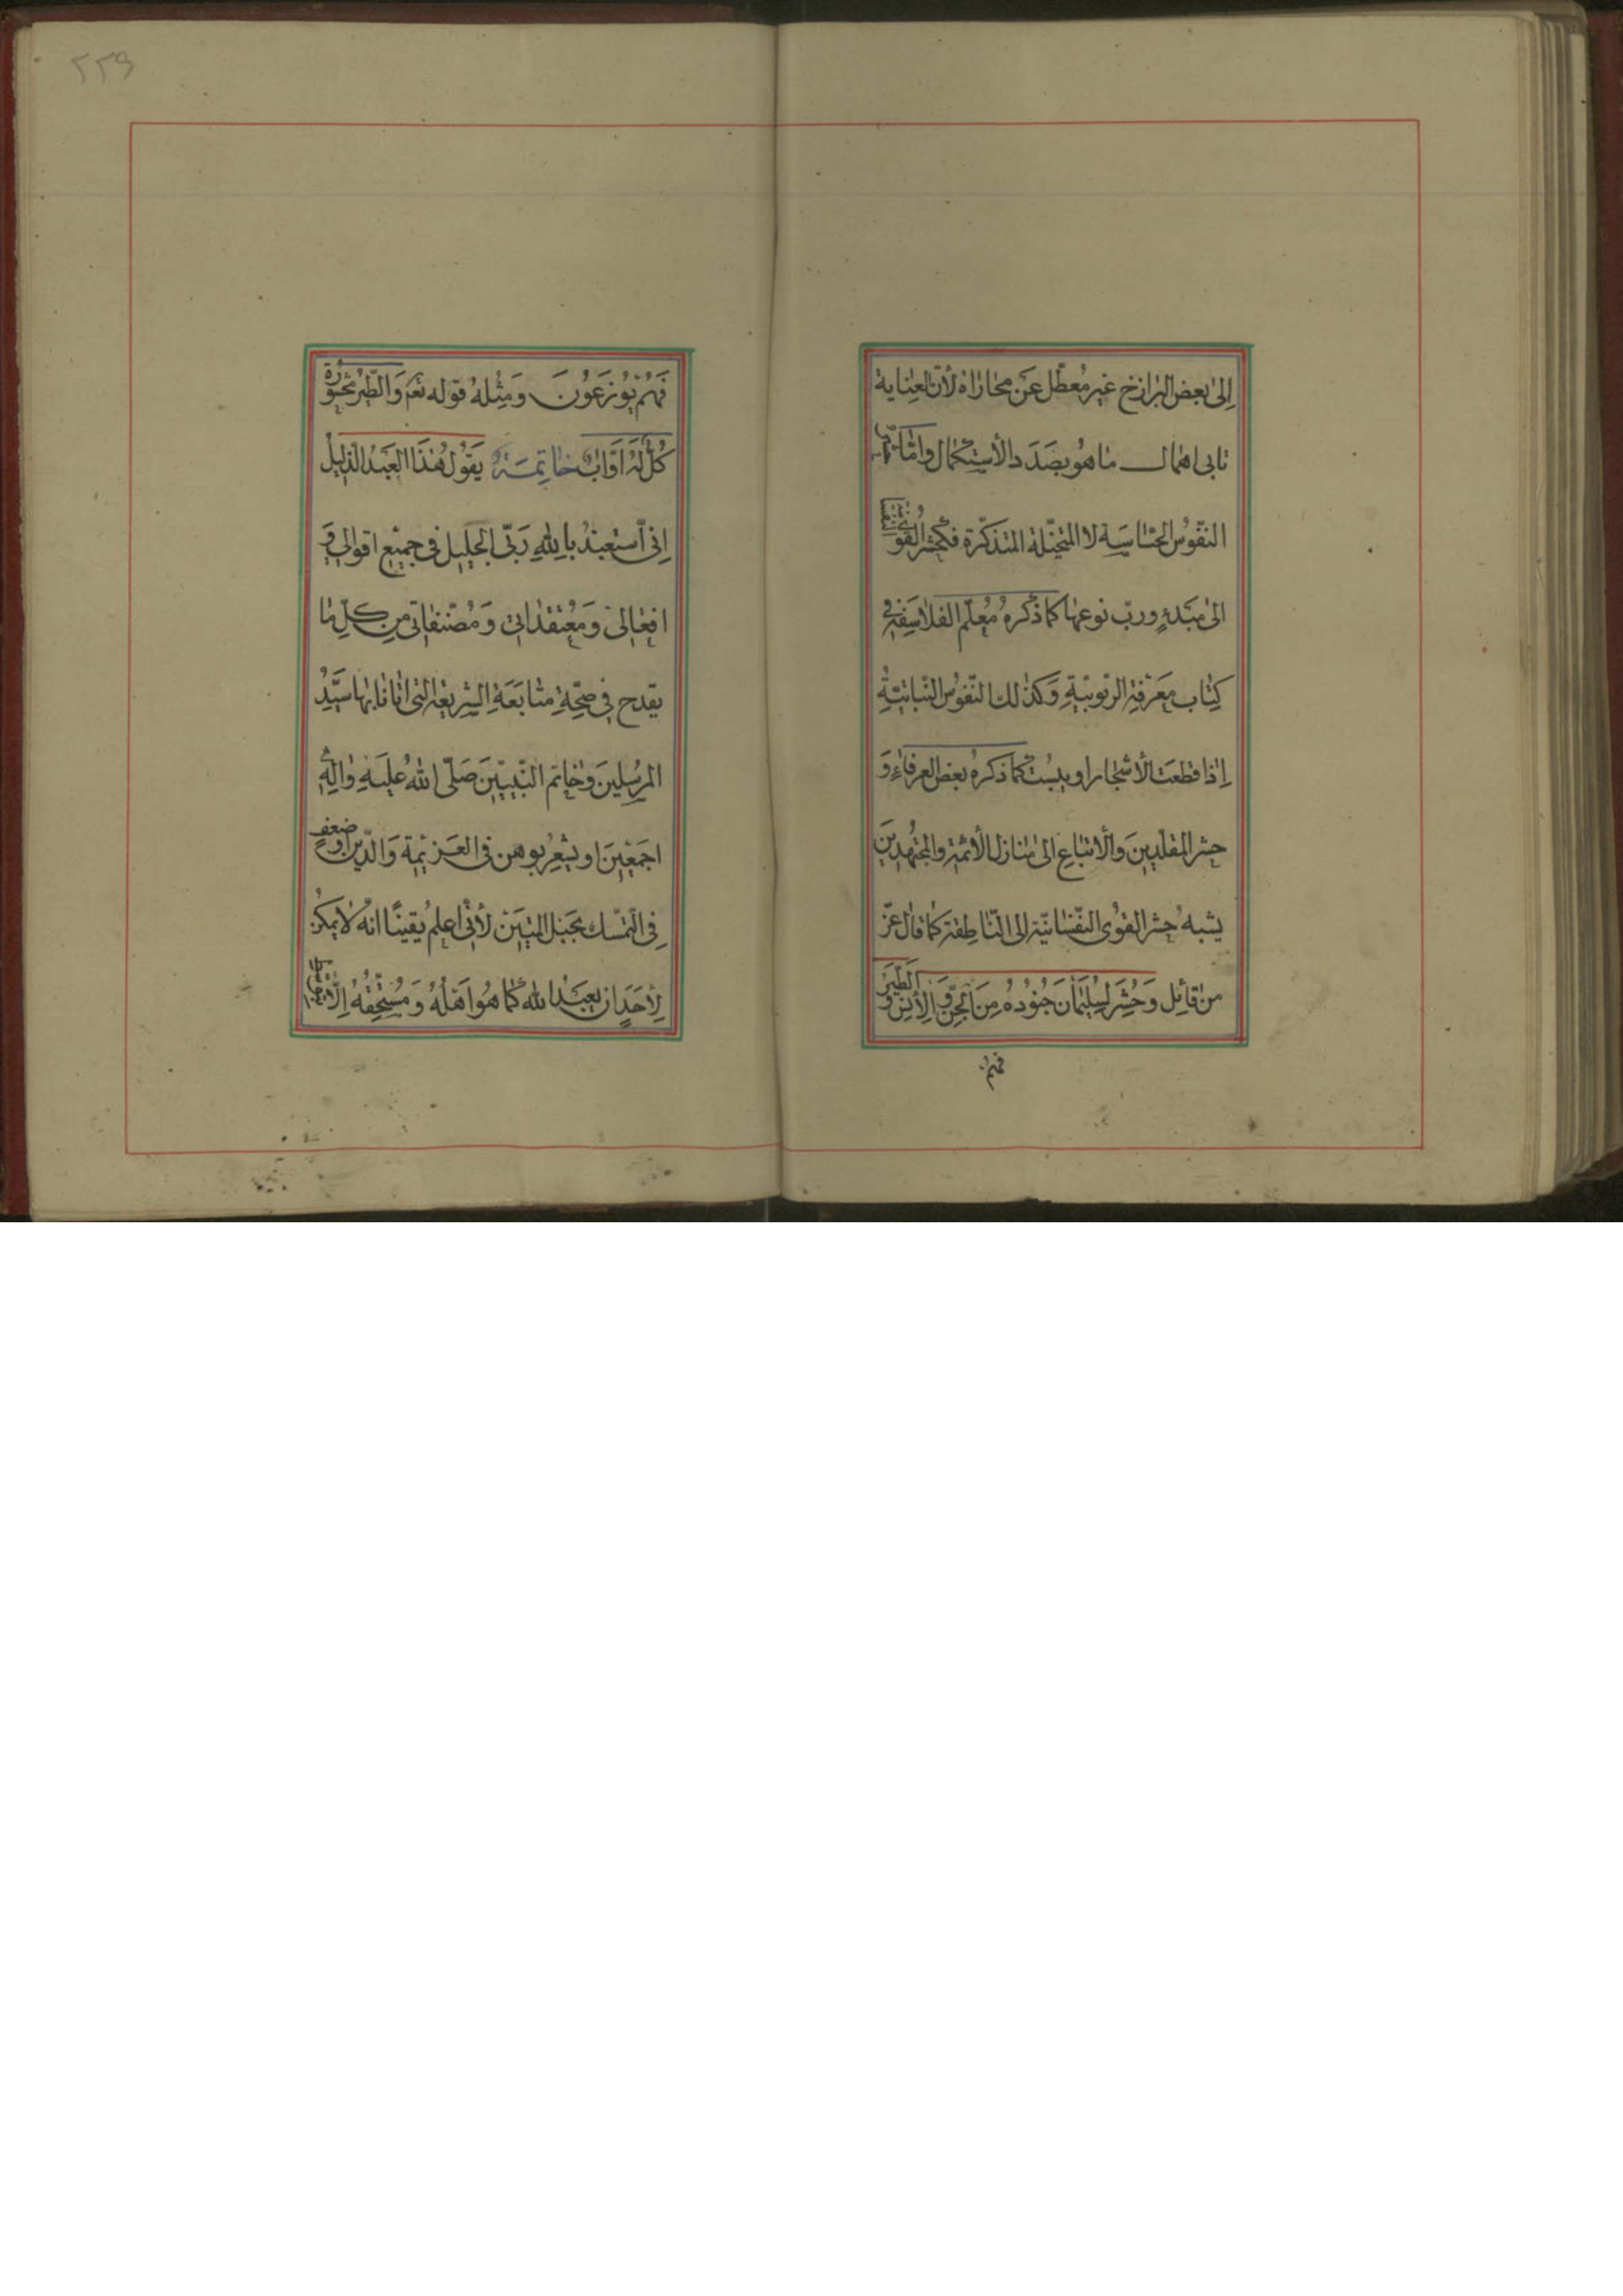 إلى بعض البرازخ غير معطّل عن مجازاة لأنّ العناية
تابى اهمال ما هو بصدد الأستكمال وامّا
النّفوس الحسّاسة لا المتخيّلة المتذكّرة فكحشر القوى النفسانية
الى مبدءٍ وربّ نوعها كما ذكره معلّم الفلاسفة في
كتاب معرفة الرّبوبيّة وكذلك النّفوس النّباتيّة
إذا قطعت الأشجار او يبست كما ذكره بعض العرفاء و
حشر المقلّدين والأتباع الى منازل الأئمّة والمجتهدين
يشبه حشر القوى النّفسانيّة إلى النّاطقة كما قال عزّ
من قائل وَحُشِرَ لِسُلَيْمَانَ جُنُودُهُ مِنَ الْجِنِّ وَ الْإِنْسِ وَ الطَّيْرِ
فهم
٢٢٩
فَهُمْ يُوزَعُونَ وَمِثْلُهُ قوله تعم وَالطَّيْرَ مَحْشُورَةً
كُلٌّ لَهُ أَوَّابٌ خاتمة يقول هذا العبد الذليل
انّى أستعيذ بالله ربّى الجليل فى جميع اقوالى و
افعالى ومعتقداتى ومصنّفاتى من كلّ ما
يقدح فى صحّة متابعة الشريعة التى اتانا بها سيّد
المرسلين وخاتم النّبيّين صلّى الله عليه واله
اجمعين او يشعر بوهن فى العزيمة والدّين او ضعف
فى التّمسّك بحبل المتين لأنّى اعلم يقينًا انّه لا يمكن
لأحد ان يعبد الله كما هو اهله ومستحقّه إلّا